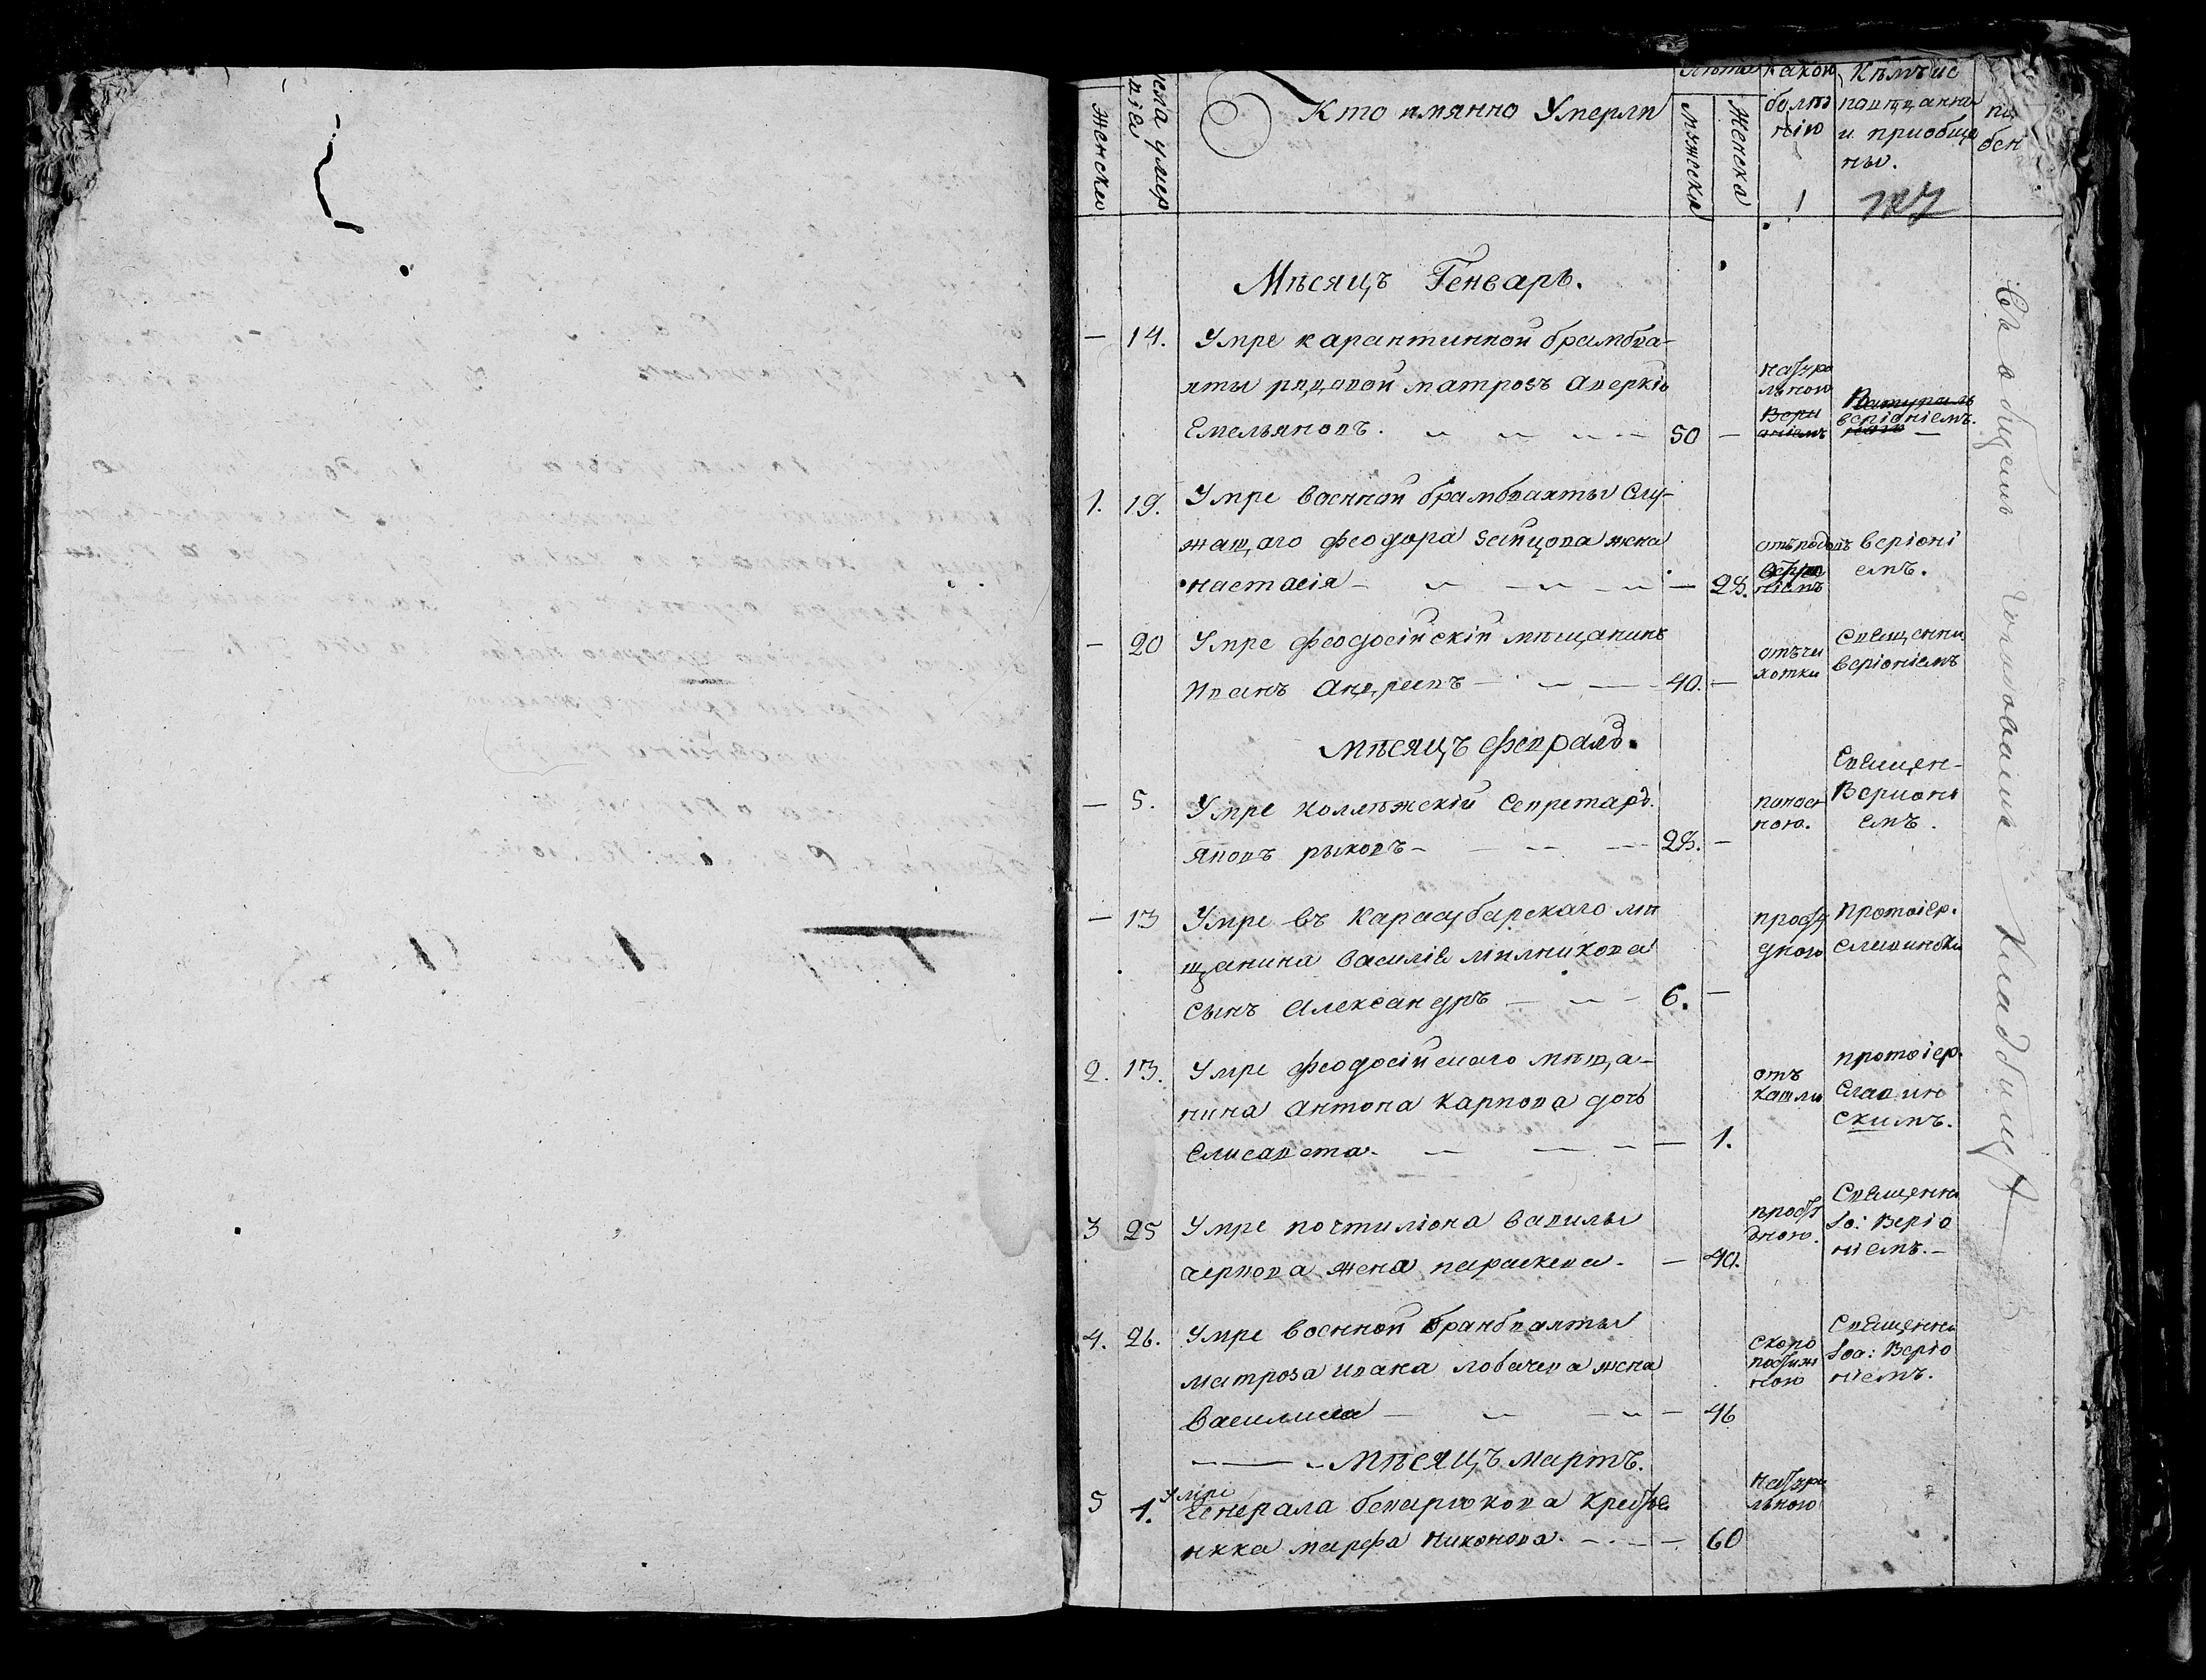 женска
числа умер
Кто имянно Умерли
лѣта
мужска
женска
какою
болѣз
нію
Кѣмъ ис
повѣданы
и приобще
ны.
Мѣсяцъ Генварь.
— 14. Умре карантинной брамвба-
хты рядовой матрозъ Аверкій
Емельяновъ. 50 —
натура
льною
веріоніемъ.
1. 19. Умре военной брамвбахты Слу-
жащого Феодора Зайцова жена
настасія — 28.
отъ родовъ
веріоні
емъ.
— 20 Умре феодосійскій мѣщанинъ
Иванъ Андреевъ 40. —
отъ чи
хотки
Священни
веріоніемъ
Мѣсяцъ февраль.
— 5. Умре Коллѣжскій Секретарь
Яковъ рыковъ 28. —
поно
ною.
Священ-
Вериони
емъ.
— 13 Умре въ Карасубарскаго мѣ
щанина Василія мѣлникова
Сынъ Александръ 6. —
просту
дною
Протоіер.
2. 13. Умре феодосійскаго мѣща-
нина Антона Карпова дочь
Елисавета — 1.
отъ
кашлю
протоіер.
Славин
скимъ.
3 25 Умре почтиліона Вавилы
чернова жена параскева — 40.
просту
дною.
Священни
Іо: Веріо
ніемъ.
4. 26. Умре военной бранбвахты
матроза ивана лобачева жена
Василиса — 46
скоро
постиж
ною
Священни
Іоа: Веріо
ніемъ.
Мѣсяцъ мартъ.
Умре
5 1. Генерала крестья
нка марфа Никонова — 60
натура
льною
На общемъ городскомъ Кладбищѣ